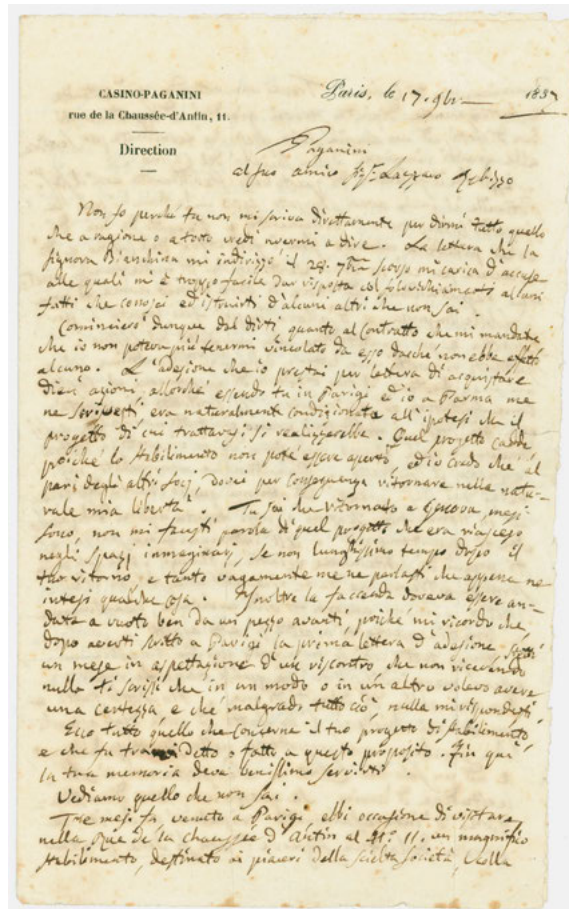 CASINO-PAGANINI
rue de la Chaussée-d'Antin, 11.
Direction
Paris, le 17. 9bre 1837
Paganini
al suo amico Lazzaro Rebizzo
Non so perché tu non mi scriva direttamente per dirmi tutto quello
che a ragione o a torto credi avermi a dire. La lettera che la
signora Bianchina mi indirizzò il 28. 7bre scorso mi carica d'accuse
alle quali mi è troppo facile dar risposta col solo richiamarti alcuni
fatti che conosci ed istruirti d'alcuni altri che non sai.
Comincierò dunque dal dirti quanto al Contratto che mi mandate
che io non poteva più tenermi vincolato da esso dacché non ebbe effetto
alcuno. L'adesione che io prestai per lettera di acquistare
dieci azioni, allorché essendo tu in Parigi ed io a Parma me
ne scrivesti, era naturalmente condizionata all'ipotesi che il
progetto di cui trattavasi si realizzerebbe. Quel progetto cadde
poiché lo stabilimento non poté essere aperto, ed io credo che al
pari degli altri socj, dovei per conseguenza ritornare nella natu-
rale mia libertà. Tu sai che ritornato a Genova, mesi
sono, non mi facesti parola di quel progetto che era rimasto
negli spazj immaginarj, se non lunghissimo tempo dopo il
tuo ritorno, e tanto vagamente me ne parlasti che appena ne
intesi qualche cosa. Inoltre la faccenda doveva essere an-
data a vuoto ben da un pezzo avanti, poiché mi ricordo che
dopo averti scritto a Parigi la prima lettera d'adesione stetti
un mese in aspettazione d'un riscontro che non ricevendo
nulla ti scrissi che in un modo o in un altro volevo avere
una certezza e che malgrado tutto ciò, nulla mi rispondesti.
Ecco tutto quello che concerne il tuo progetto di stabilimento,
e che fu tra noi detto o fatto a questo proposito. Fin qui
la tua memoria deve benissimo servirti.
Vediamo quello che non sai.
Tre mesi fa venuto a Parigi ebbi occasione di visitare
nella Rue de la chaussée d'Antin al N.o 11. un magnifico
stabilimento, destinato ai piaceri della scielta società, colla